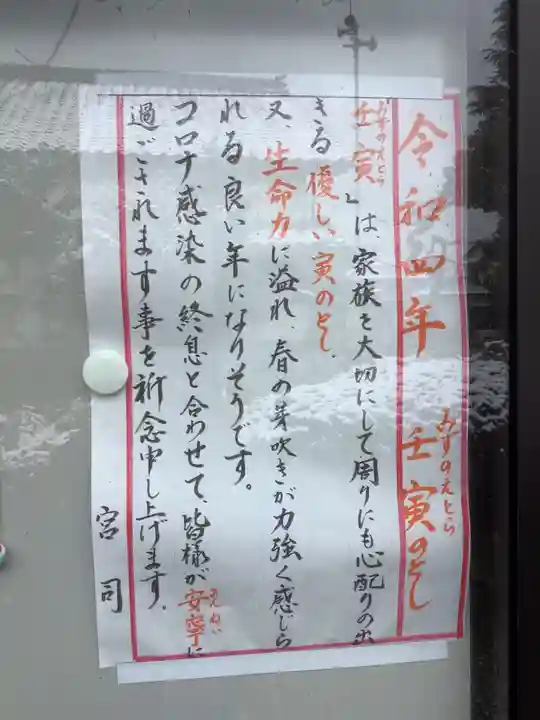 令和四年 壬寅のとし
みずのえとら
みずのえとら
壬寅」は、家族を大切にして周りにも心配りの出
きる優しい寅のとし、
又、生命力に溢れ、春の芽吹きが力強く感じら
れる良い年になりそうです。
コロナ感染の終息と合わせて、皆様が安寧に
あんねい
過ごされます事を祈念申し上げます。
宮司